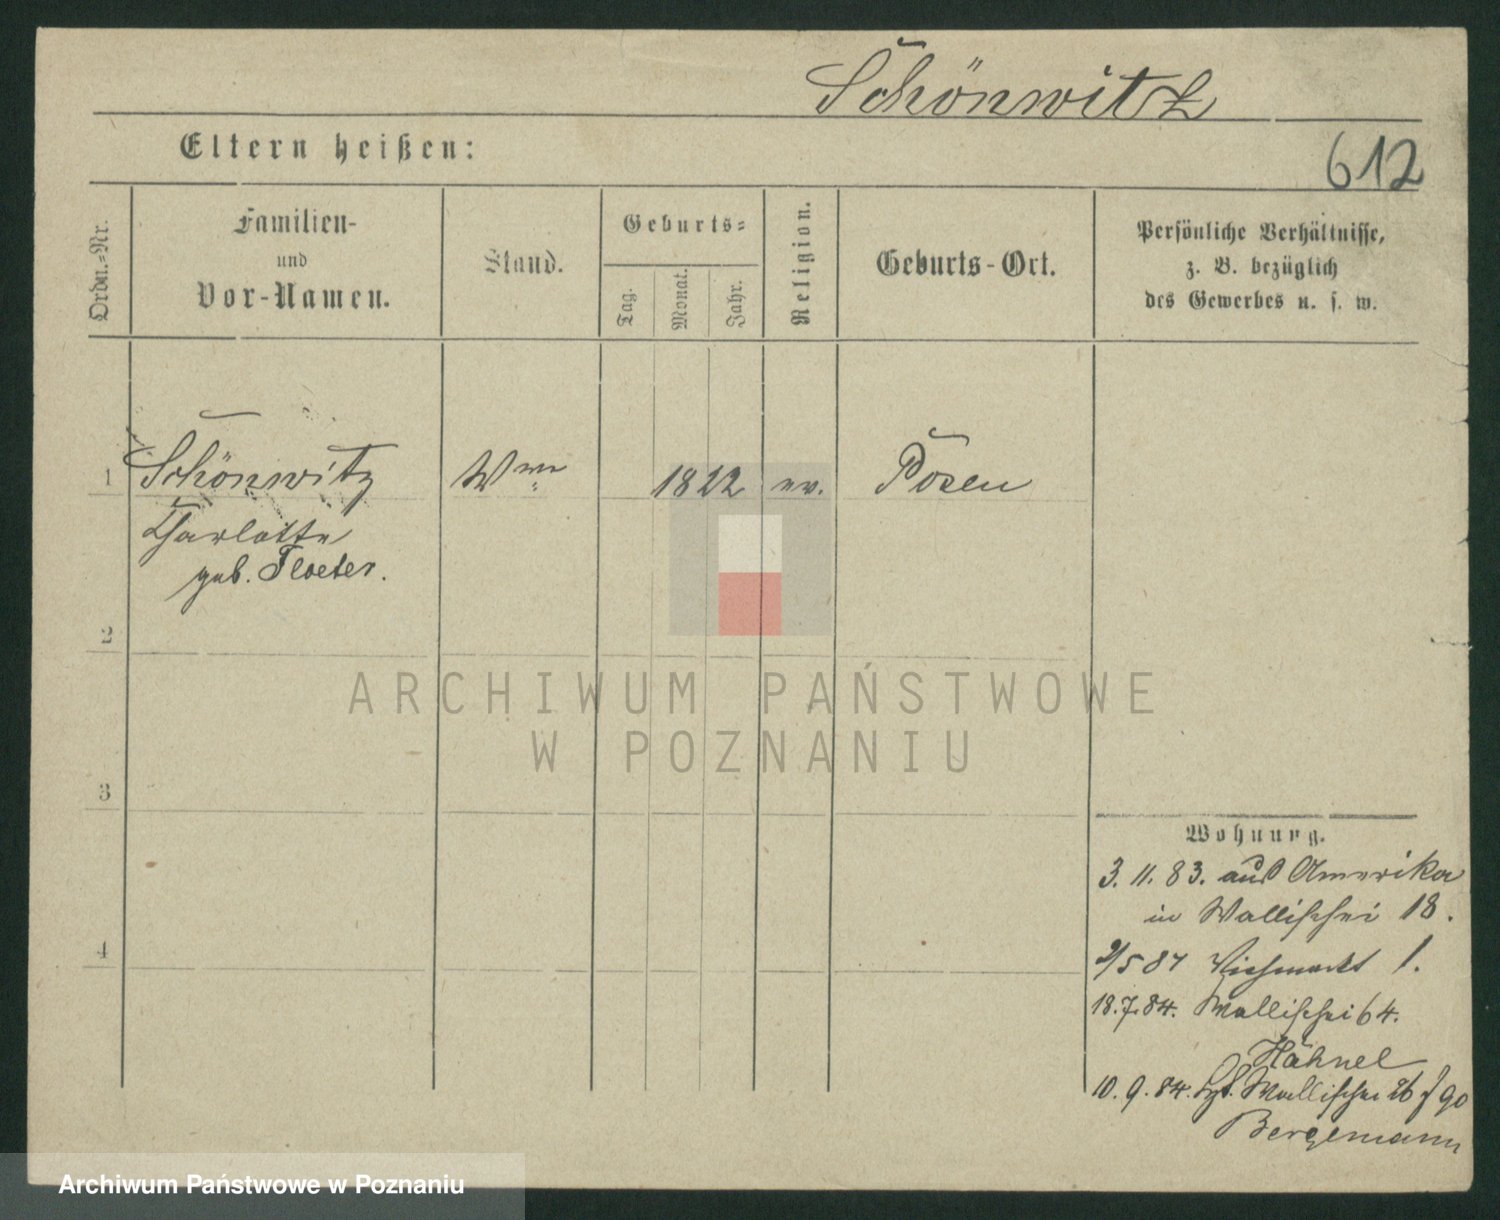 Schönwitz
Eltern heißen:
612
Ordn.=Nr.
Familien-
und
Vor-Namen.
Stand.
Geburts=
Tag.
Monat.
Jahr.
Religion.
Geburts-Ort.
Persönliche Verhältnisse,
z. B. bezüglich
des Gewerbes u. s. w.
1
Schönwitz
Wwe
1822
ev.
Posen
Charlotte
geb. Floeter.
2
ARCHIWUM PAŃSTWOWE
W POZNANIU
3
Wohnung.
3. 11. 83. aus Amerika
in Wallischei 18.
4
2/5 84 Viehmarkt 1.
18.7.84. Wallischei 64.
Hähnel
10. 9. 84. Wallischei 90
Bergemann
Archiwum Państwowe w Poznaniu